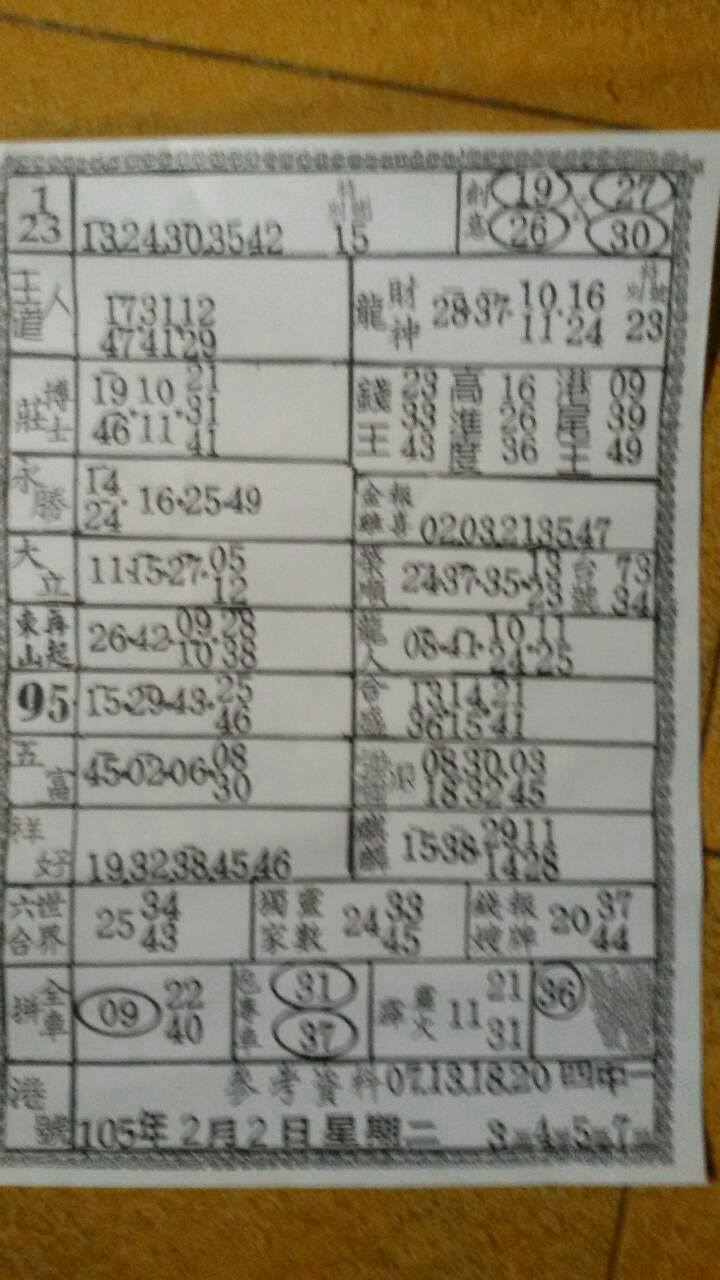 1
23 13.24.30.35.42 特別號 15 創意 19 27
26 30
人王道 17.31.12
47.41.29
財神龍 28.37.10.16
11 24 特別號 23
博士莊 19 10 21
46 11 31
41
錢王 23 高準度 16 港尾王 09
33 26 39
43 36 49
永勝 14
24 16.25.49
金雞報喜 02.03.21.35.47
大立 11.15.27.05
12
榮順 24.37.35.13
23 台號 73
34
東山再起 26.42.09.28
10.38
龍人 08.41.10.11
24.25
95 15.29.43.25
46
合盛 13.14.21
36.15.41
五富 45.02.06.08
30
08.30.03
18.32.45
祥好 19.32.38.45.46
麒麟 15.38.29.11
14.28
六合世界 25 34
43
獨家靈數 24 33
45
錢嫂報牌 20 37
44
拼全車 09 22
40
包專車 31
37
霹靂火 11 21
31
36
參考資料07.13.18.20 四中一
港號 105年2月2日星期二 3=4=5=7=